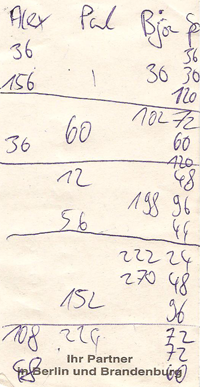 Alex Paul Björ
36 36
156 30 30
120
102 72
60 60
36 120
12 48
198 96
56 44
222 24
270 48
152 96
108 224 72
72
68 60
Ihr Partner
in Berlin und Brandenburg